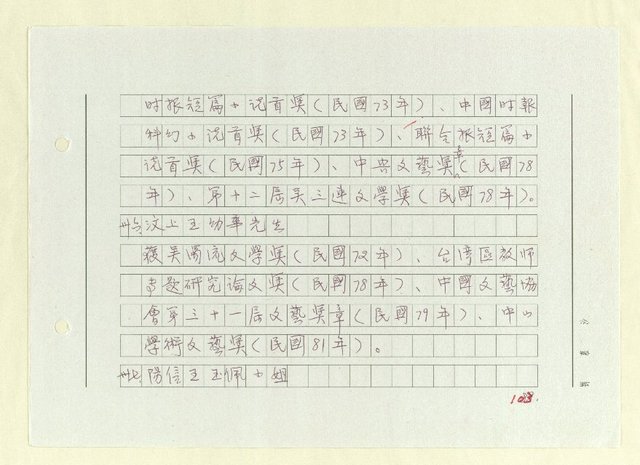 时报短篇小说首奖(民國73年)、中國时報
科幻小说首奖(民國73年)、聯合报短篇小
说首奖(民國75年)、中央文藝奖章(民國78
年)、第十二届吴三連文學奖(民國78年)。
卅六汶上王幼華先生
獲吴濁流文學奖(民國72年)、台湾區教师
专题研究论文奖(民國78年)、中國文藝協
會第三十一届文藝奖章(民國79年)、中山
學術文藝奖(民國81年)。
卅七陽信王玉佩小姐
103.